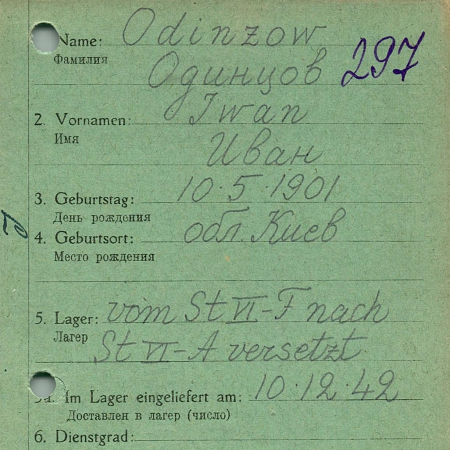 Name: Odinzow
Фамилия Одинцов 297
2. Vornamen: Iwan
Имя Иван
3. Geburtstag: 10.5.1901
День рождения
4. Geburtsort: обл. Киев
Место рождения
5. Lager: vom St VI-F nach
Лагер St VI-A versetzt.
5a. Im Lager eingeliefert am: 10.12.42
Доставлен в лагер (число)
6. Dienstgrad: